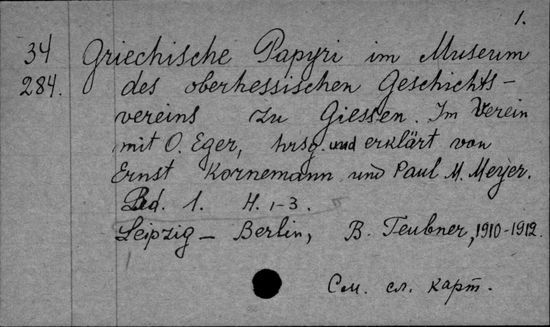 1.
34 Griechische Papyri im Museum
284. des oberhessischen Geschichts-
vereins zu Giessen. Im Verein
mit O. Eger, hrsg. und erklärt von
Ernst Kornemann und Paul M. Meyer.
Bd. 1. H. 1-3.
Leipzig - Berlin, B. Teubner, 1910-1912.
См. сл. карт.